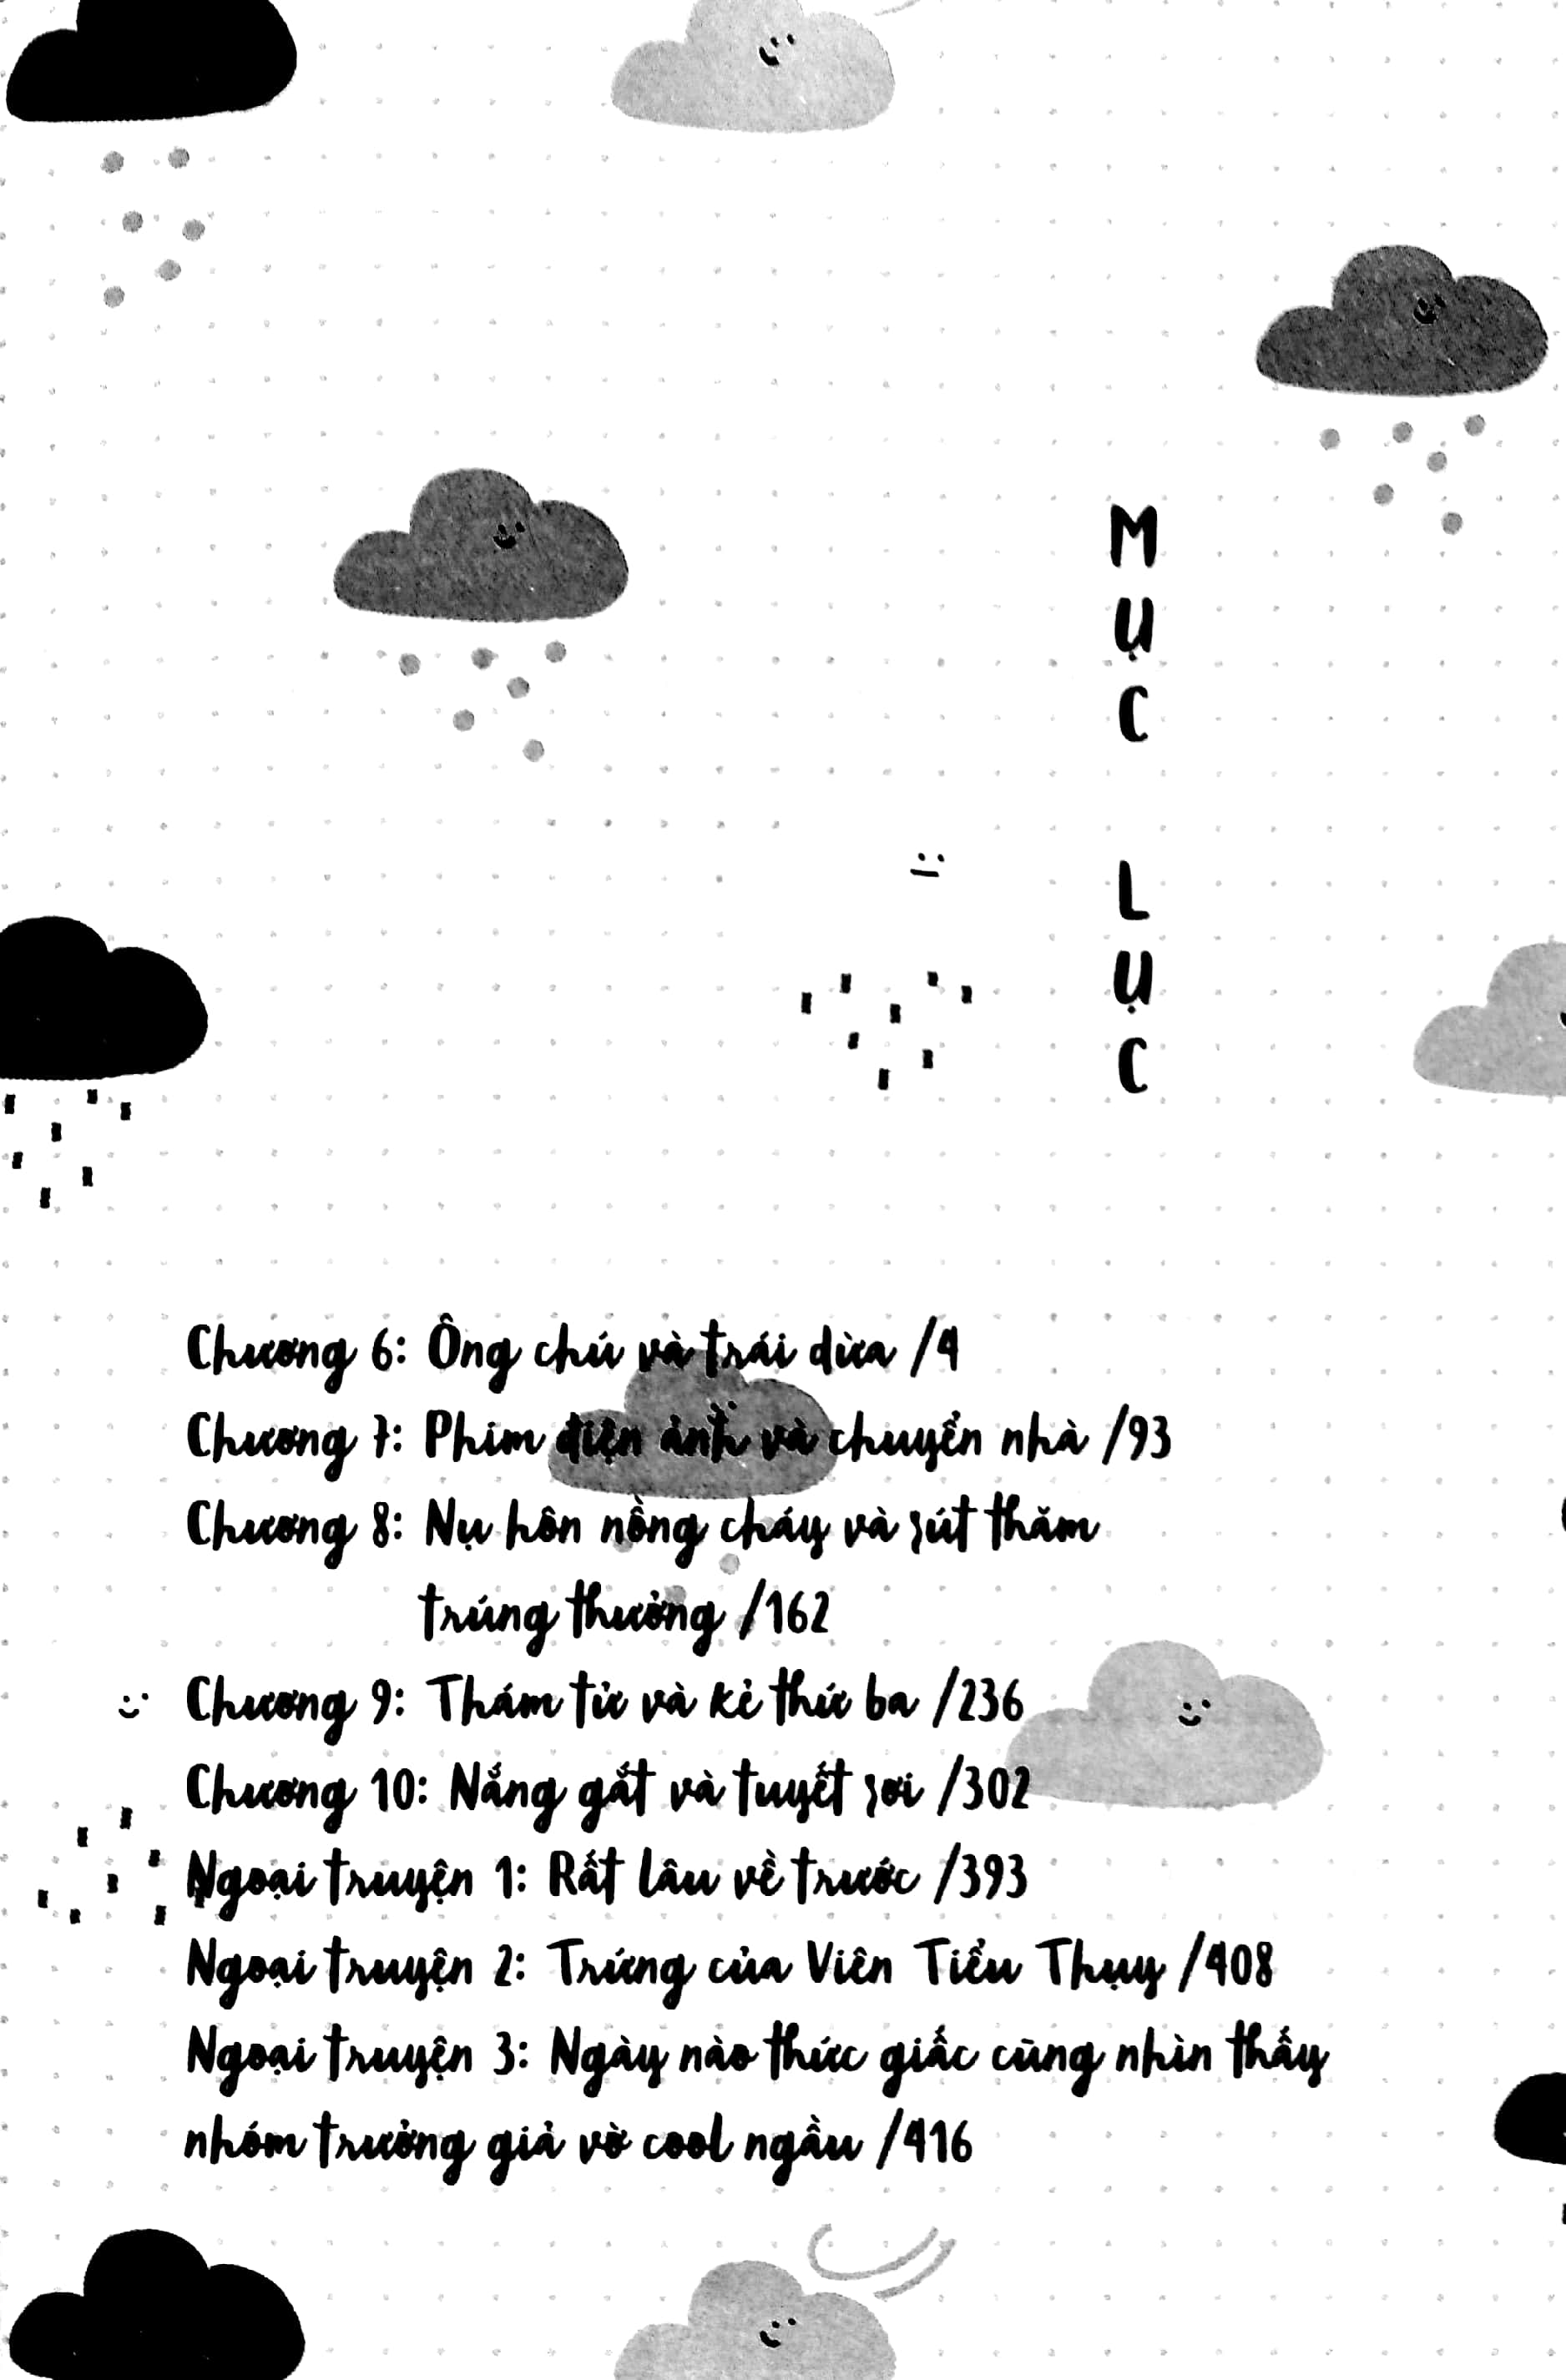 MỤC LỤC
Chương 6: Ông chú và trái dừa /4
Chương 7: Phim điện ảnh và chuyển nhà /93
Chương 8: Nụ hôn nồng cháy và rút thăm
trúng thưởng /162
Chương 9: Thám tử và kẻ thứ ba /236
Chương 10: Nắng gắt và tuyết rơi /302
Ngoại truyện 1: Rất lâu về trước /393
Ngoại truyện 2: Trứng của Viên Tiểu Thụy /408
Ngoại truyện 3: Ngày nào thức giấc cũng nhìn thấy
nhóm trưởng giả vờ cool ngầu /416